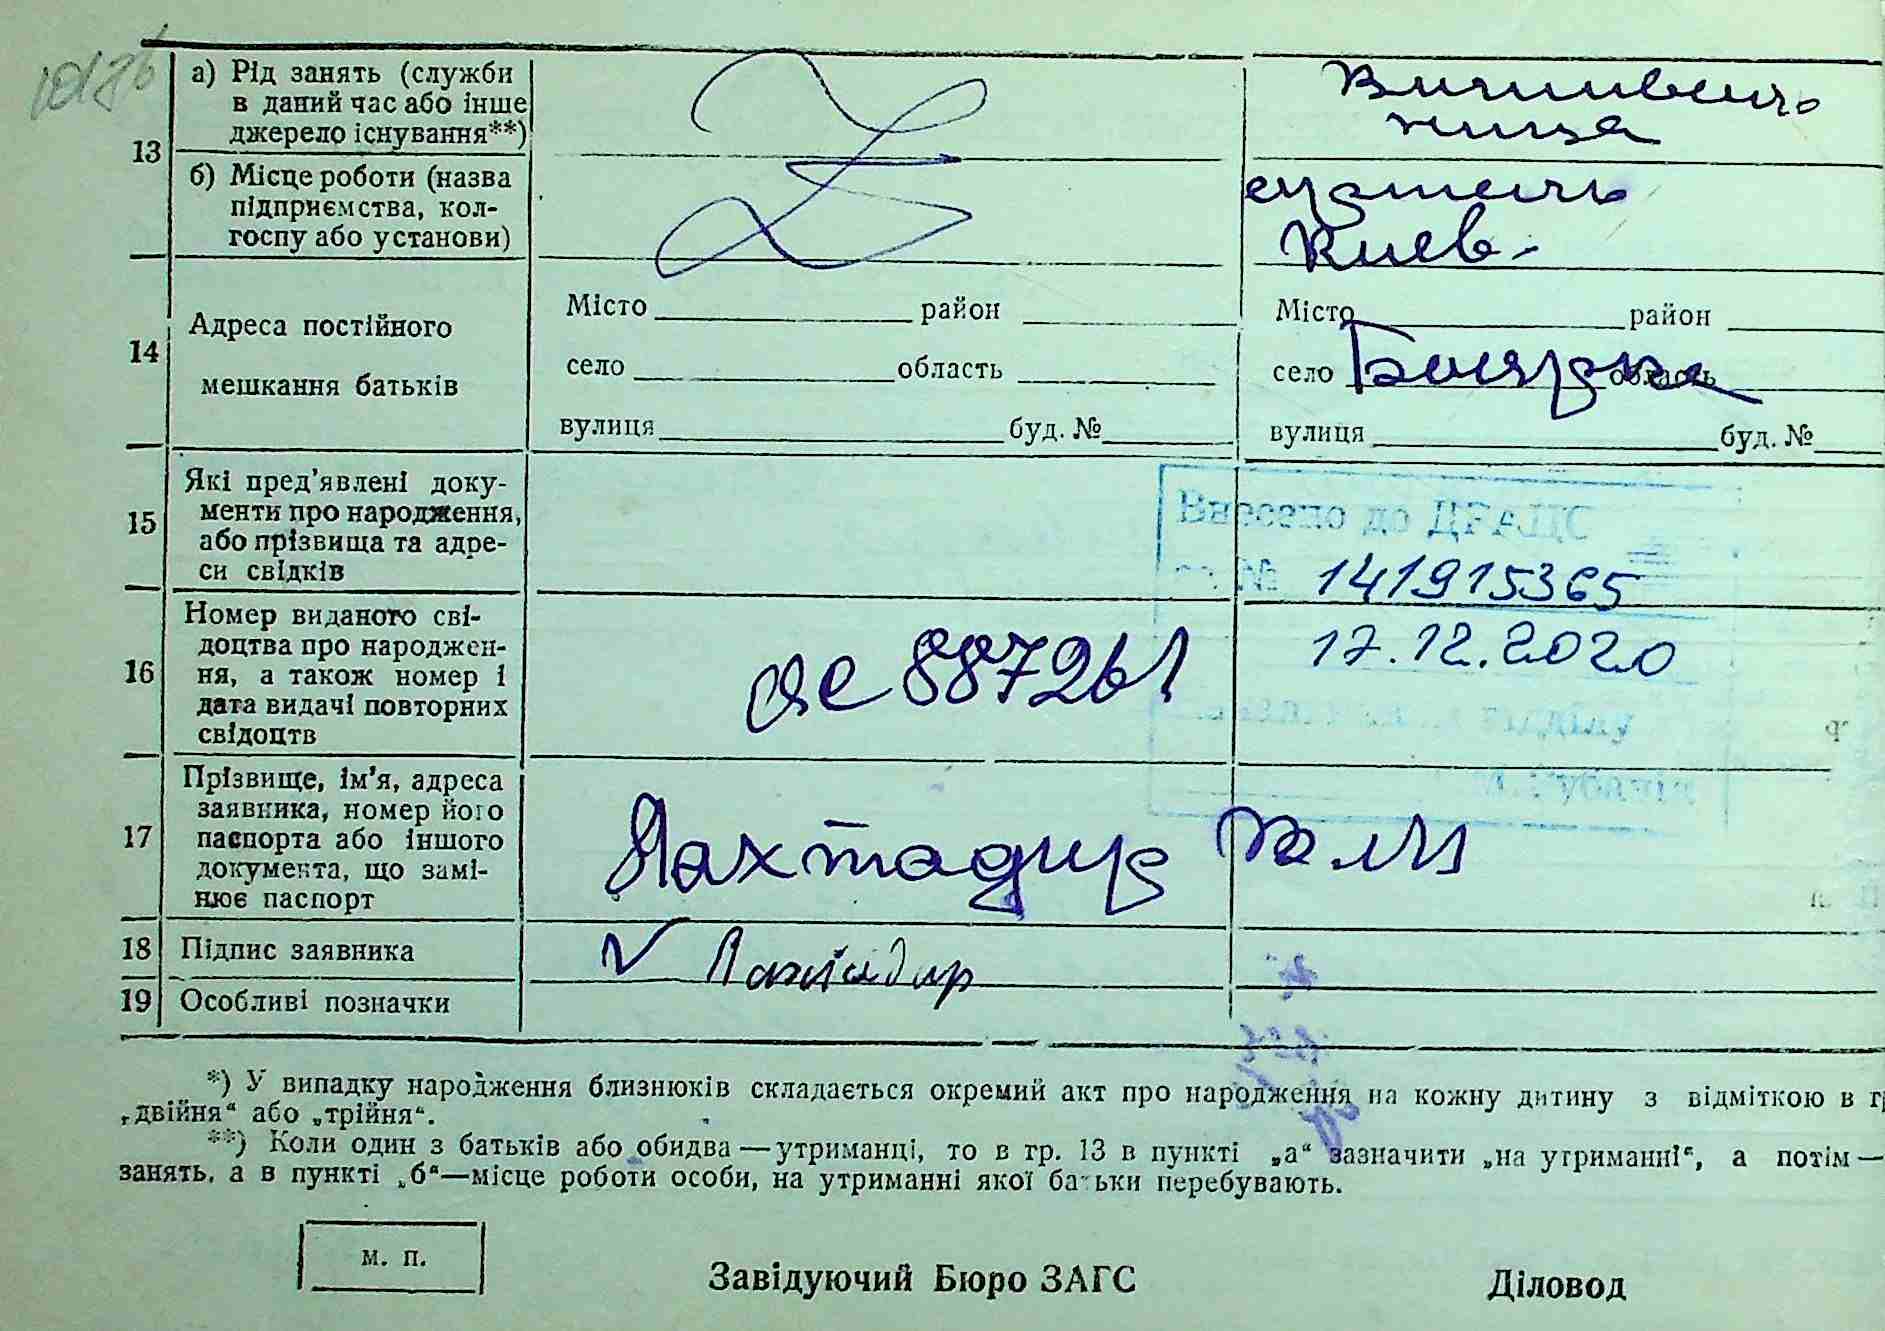 13
а) Рід занять (служби
в даний час або інше
джерело існування**)
Вишиваль
ница
б) Місце роботи (назва
підприємства, кол-
госпу або установи)
Киев-
14
Адреса постійного
мешкання батьків
Місто район
село область
вулиця буд. №
Місто район
село Боярка область
вулиця буд. №
15
Які пред'явлені доку-
менти про народження,
або прізвища та адре-
си свідків
Внесено до ДРАЦС
№ 141915365
17.12.2020
відділу
16
Номер виданого сві-
доцтва про народжен-
ня, а також номер і
дата видачі повторних
свідоцтв
887261
17
Прізвище, ім'я, адреса
заявника, номер його
паспорта або іншого
документа, що замі-
нює паспорт
Лахтадир
18
Підпис заявника
Лахтадир
19
Особливі позначки
*) У випадку народження близнюків складається окремий акт про народження на кожну дитину з відміткою в
„двійня“ або „трійня“.
**) Коли один з батьків або обидва—утриманці, то в гр. 13 в пункті „а“ зазначити „на утриманні“, а потім—
занять, а в пункті „б“—місце роботи особи, на утриманні якої батьки перебувають.
м. п.
Завідуючий Бюро ЗАГС
Діловод